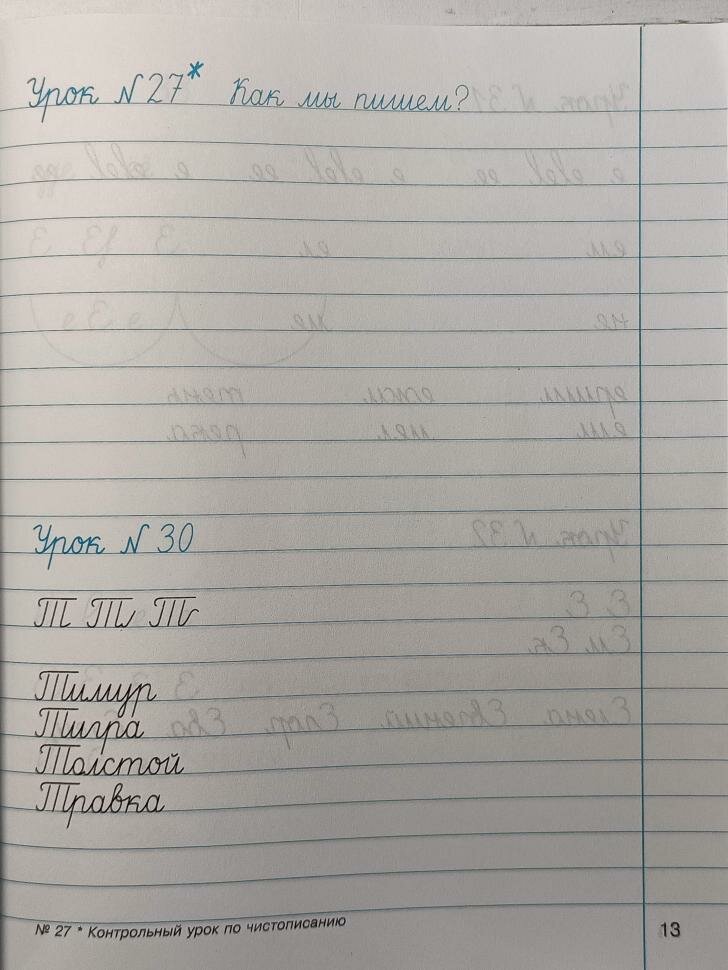 Урок N 27* Как мы пишем?
Урок N 30
Т Ти Тг
Тимур
Тигра
Толстой
Травка
№ 27 * Контрольный урок по чистописанию
13